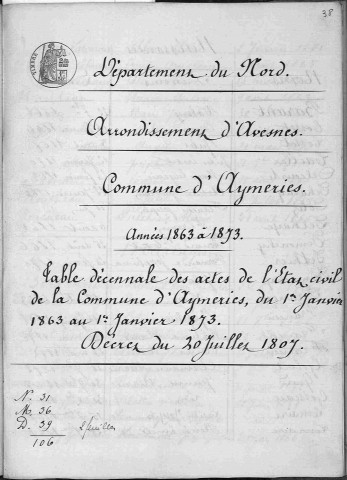 38
TIMBRE
Département du Nord.
Arrondissement d'Avesnes.
Commune d'Aymeries.
Années 1863 à 1873.
Table décennale des actes de l'Etat civil
de la Commune d'Aymeries, du 1er Janvier
1863 au 1er Janvier 1873.
Décret du 20 Juillet 1807.
N. 31
M. 36
D. 39
106
2 feuilles